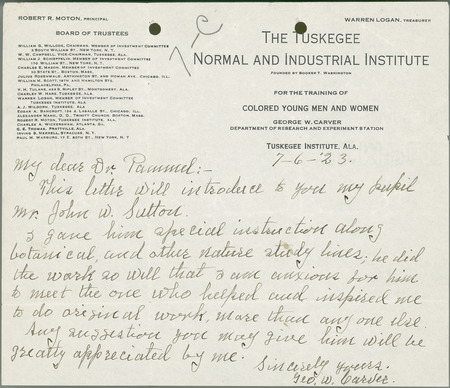 ROBERT R. MOTON, PRINCIPAL
WARREN LOGAN, TREASURER
BOARD OF TRUSTEES
WILLIAM G. WILLCOX, CHAIRMAN, MEMBER OF INVESTMENT COMMITTEE
3 SOUTH WILLIAM ST., NEW YORK, N. Y.
W. W. CAMPBELL, VICE-CHAIRMAN, TUSKEGEE, ALA.
WILLIAM J. SCHIEFFELIN, MEMBER OF INVESTMENT COMMITTEE
170 WILLIAM ST., NEW YORK, N. Y.
CHARLES E. MASON, MEMBER OF INVESTMENT COMMITTEE
30 STATE ST., BOSTON, MASS.
JULIUS ROSENWALD, ARTHINGTON ST. AND HOMAN AVE., CHICAGO, ILL.
WILLIAM M. SCOTT, MEMBER OF INVESTMENT COMMITTEE
PHILADELPHIA, PA.
V. H. TULANE, RIPLEY ST., MONTGOMERY, ALA.
CHARLES W. HARE, TUSKEGEE, ALA.
WARREN LOGAN, MEMBER OF INVESTMENT COMMITTEE
TUSKEGEE INSTITUTE, ALA.
A. J. WILBORN, TUSKEGEE, ALA.
EDGAR A. BANCROFT, LA SALLE ST., CHICAGO, ILL.
ALEXANDER MANN, D. D., TRINITY CHURCH, BOSTON, MASS.
ROBERT R. MOTON, TUSKEGEE INSTITUTE, ALA.
CHARLES A. WICKERSHAM, ATLANTA, GA.
G. E. THOMAS, PRATTVILLE, ALA.
IRVING S. MERRELL, SYRACUSE, N. Y.
PAUL M. WARBURG, 17 E. 80TH ST., NEW YORK, N. Y.
C
THE TUSKEGEE
NORMAL AND INDUSTRIAL INSTITUTE
FOUNDED BY BOOKER T. WASHINGTON
FOR THE TRAINING OF
COLORED YOUNG MEN AND WOMEN
GEORGE W. CARVER
DEPARTMENT OF RESEARCH AND EXPERIMENT STATION
TUSKEGEE INSTITUTE, ALA.
7-6-'23.
My dear Dr. Pammel:-
This letter will introduce to you my pupil
Mr. John W. Sutton.
I gave him special instruction along
botanical, and other nature study lines, he did
the work so will that I am anxious for him
to meet the one who helped and inspired me
to do original work, more than any one else.
Any suggestion you may give him will be
greatly appreciated by me.
Sincerely yours.
Geo. W. Carver.